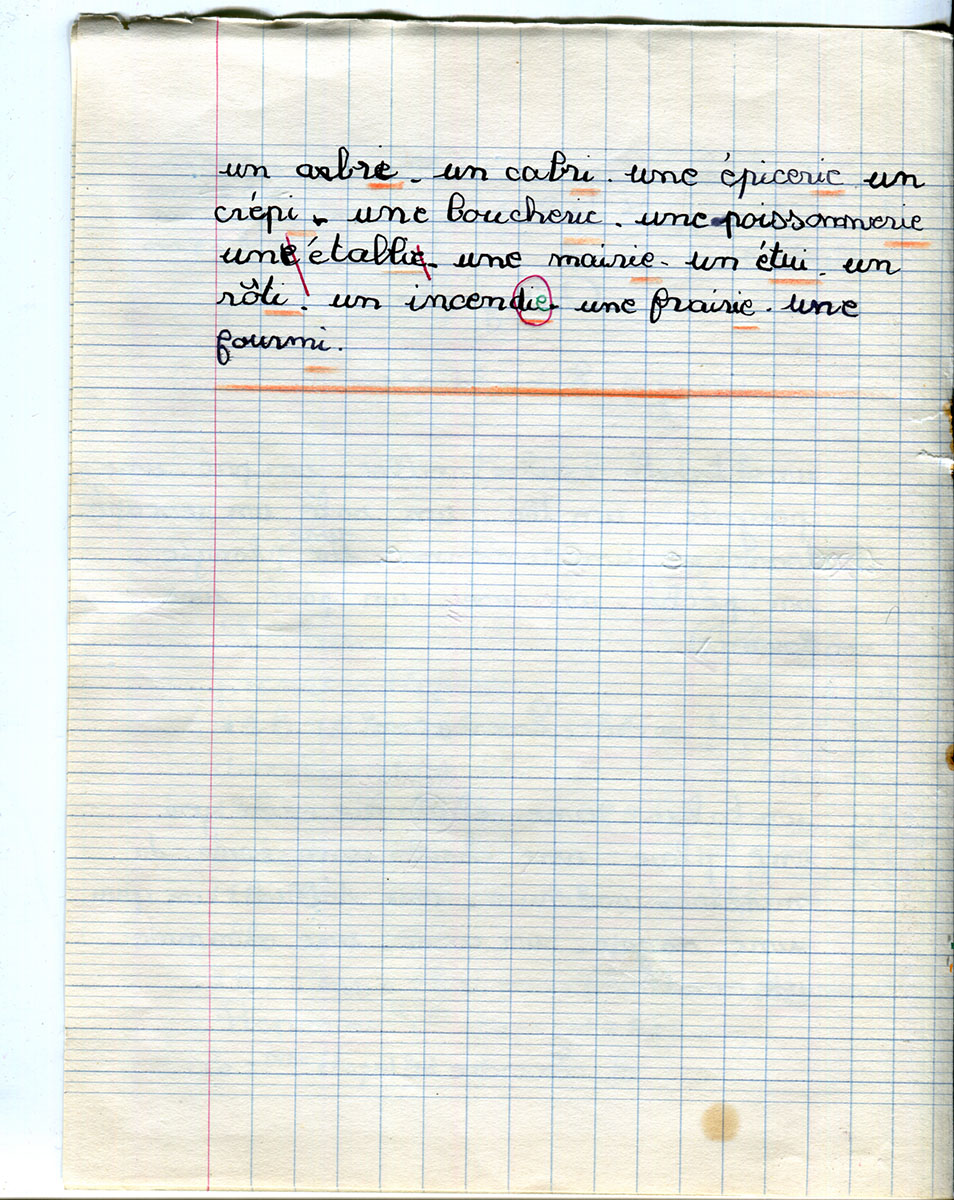 un abrie - un cabri. une épicerie un
crépi. une boucherie. une poissonnerie
une établie - une mairie - un étui. un
rôti. un incendie - une prairie. une
fourmi.